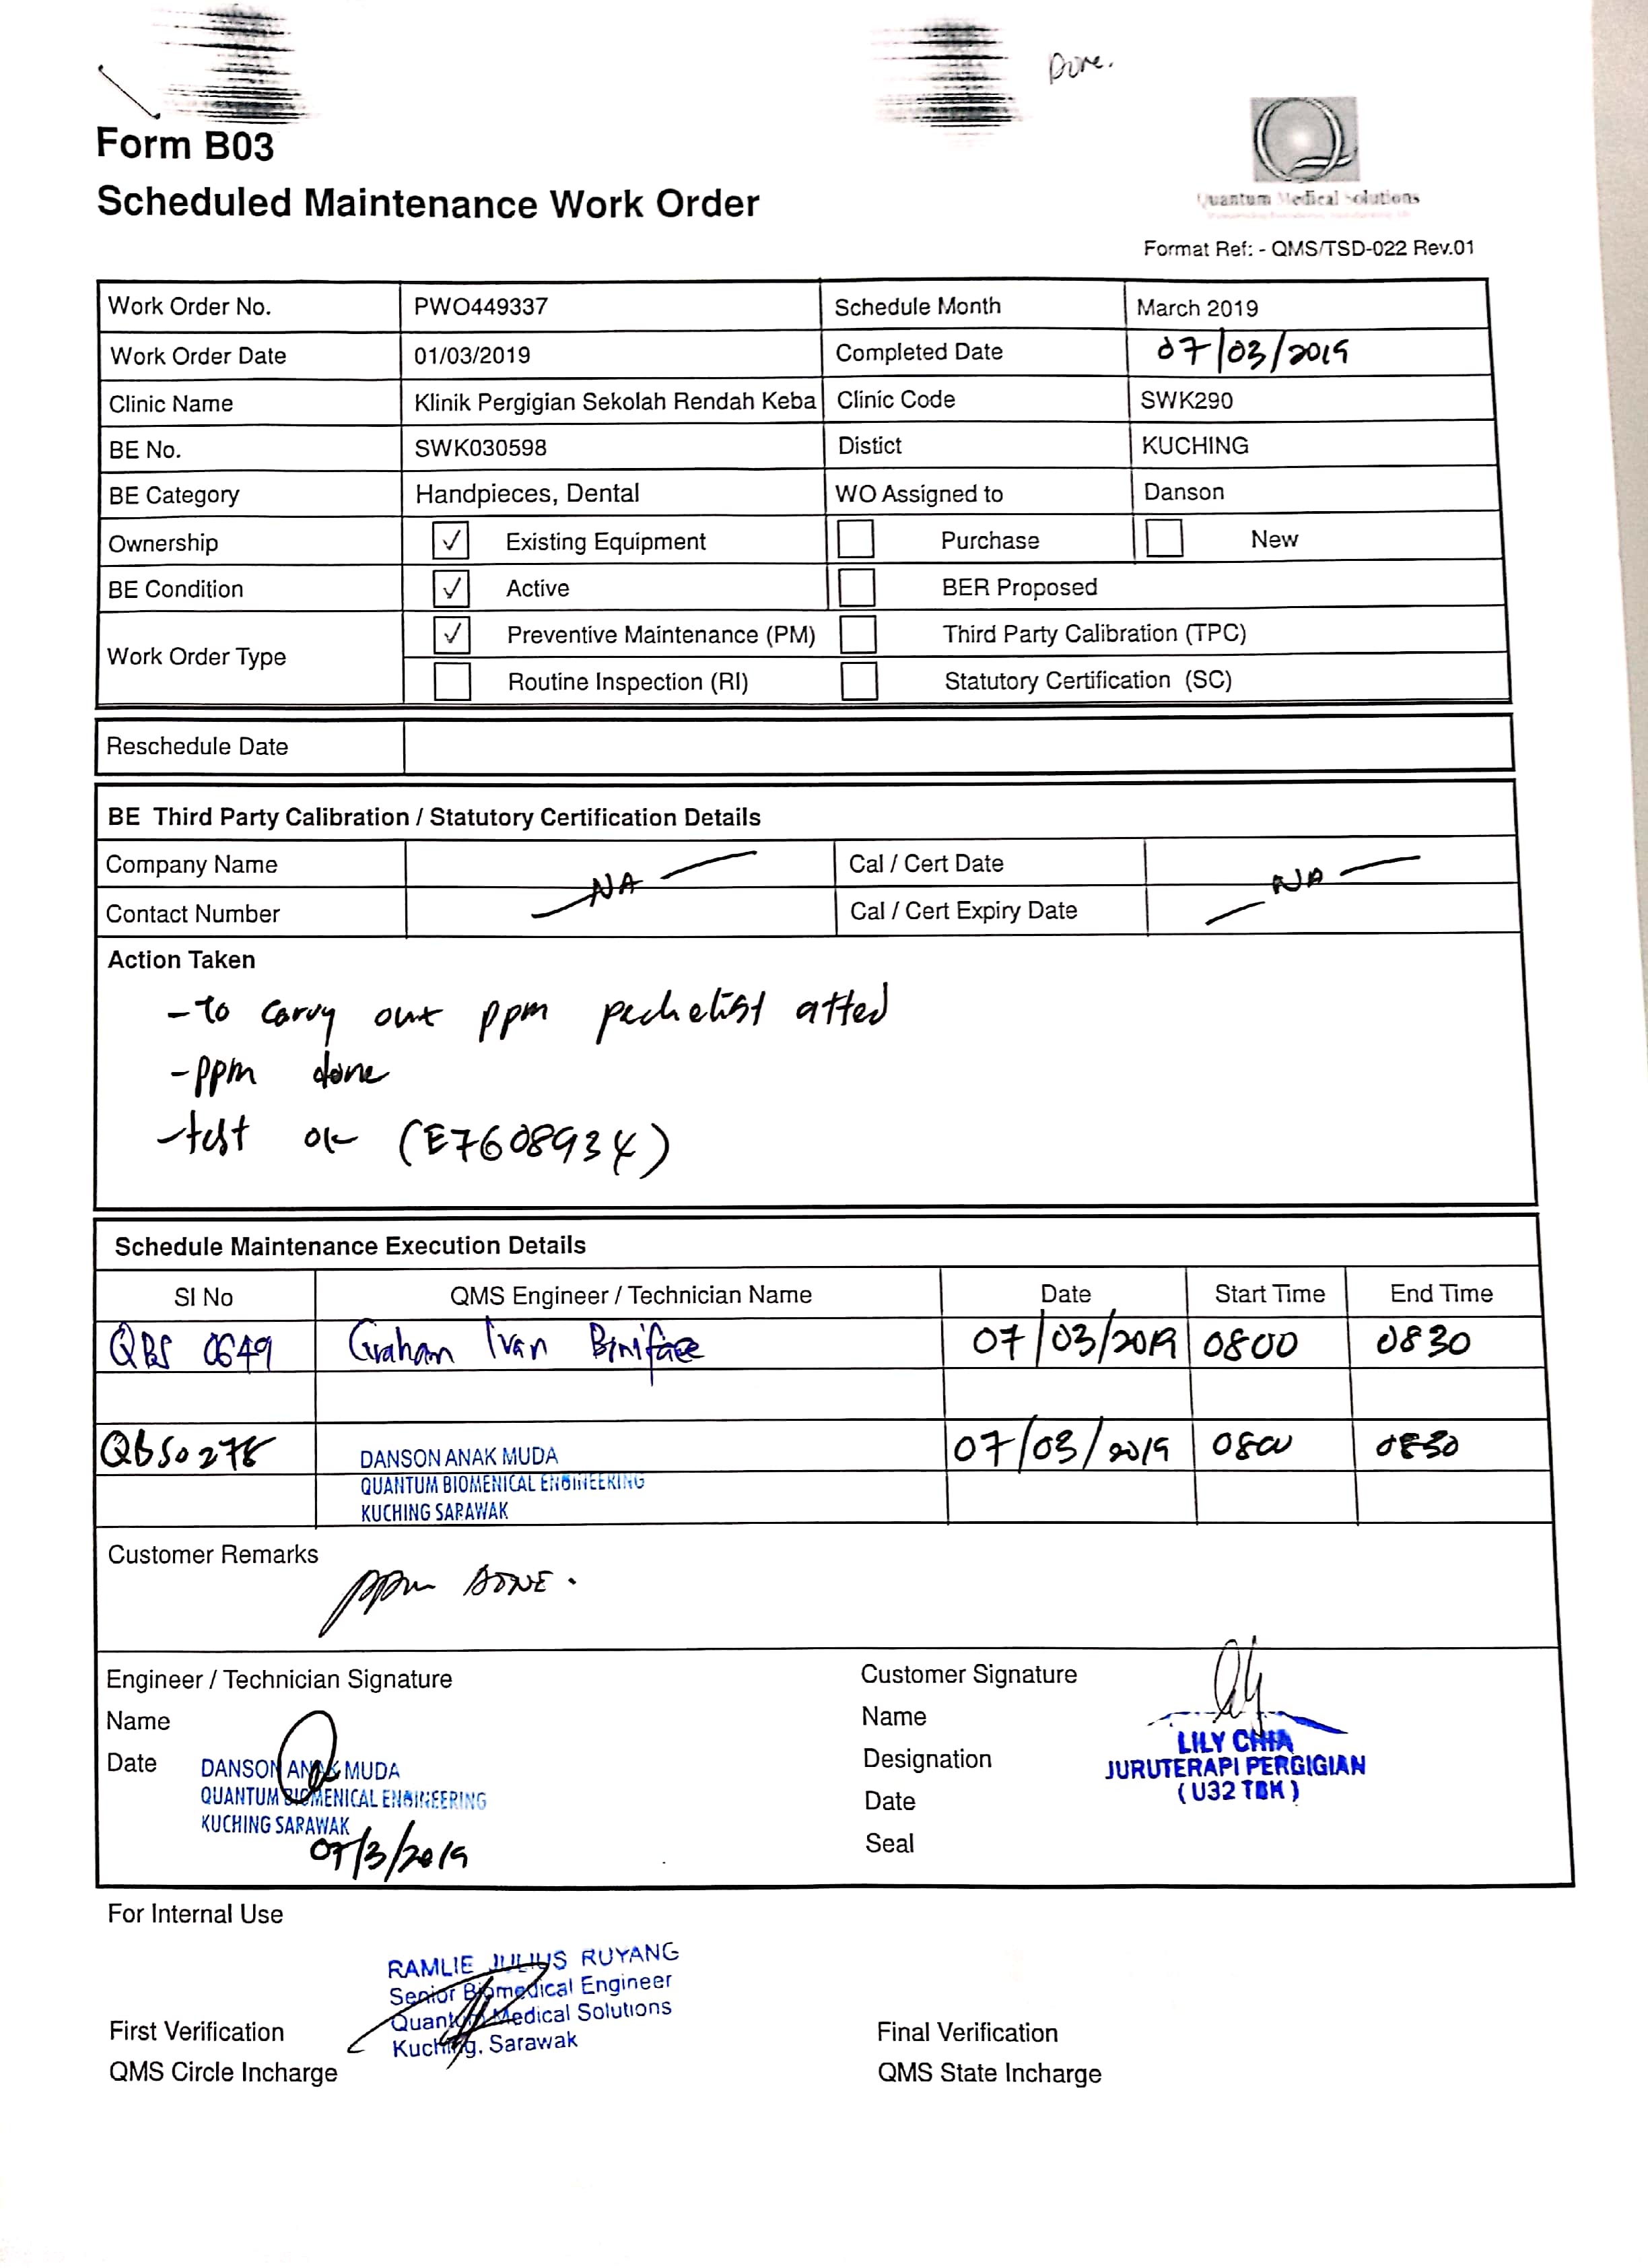 Done.
Form B03
Scheduled Maintenance Work Order
Quantum Medical Solutions
Format Ref: - QMS/TSD-022 Rev.01
Work Order No. PWO449337 Schedule Month March 2019
Work Order Date 01/03/2019 Completed Date 07/03/2019
Clinic Name Klinik Pergigian Sekolah Rendah Keba Clinic Code SWK290
BE No. SWK030598 Distict KUCHING
BE Category Handpieces, Dental WO Assigned to Danson
Ownership ✓ Existing Equipment Purchase New
BE Condition ✓ Active BER Proposed
Work Order Type ✓ Preventive Maintenance (PM) Third Party Calibration (TPC)
Routine Inspection (RI) Statutory Certification (SC)
Reschedule Date
BE Third Party Calibration / Statutory Certification Details
Company Name NA Cal / Cert Date NA
Contact Number Cal / Cert Expiry Date
Action Taken
- to carry out ppm atted
- ppm done
- test ok (E7608934)
Schedule Maintenance Execution Details
SI No QMS Engineer / Technician Name Date Start Time End Time
QBS 0649 Graham Ivan Boniface 07/03/2019 0800 0830
QBS0278 DANSON ANAK MUDA 07/03/2019 0800 0830
QUANTUM BIOMENICAL ENGINEERING
KUCHING SARAWAK
Customer Remarks
ppm DONE.
Engineer / Technician Signature Customer Signature
Name Name
Date DANSON ANAK MUDA
QUANTUM BIOMENICAL ENGINEERING
KUCHING SARAWAK
07/3/2019
LILY CHIA
Designation JURUTERAPI PERGIGIAN
(U32 TBK)
Date
Seal
For Internal Use
RAMLIE JULIUS RUYANG
Senior Biomedical Engineer
Quantum Medical Solutions
Kuching, Sarawak
First Verification Final Verification
QMS Circle Incharge QMS State Incharge